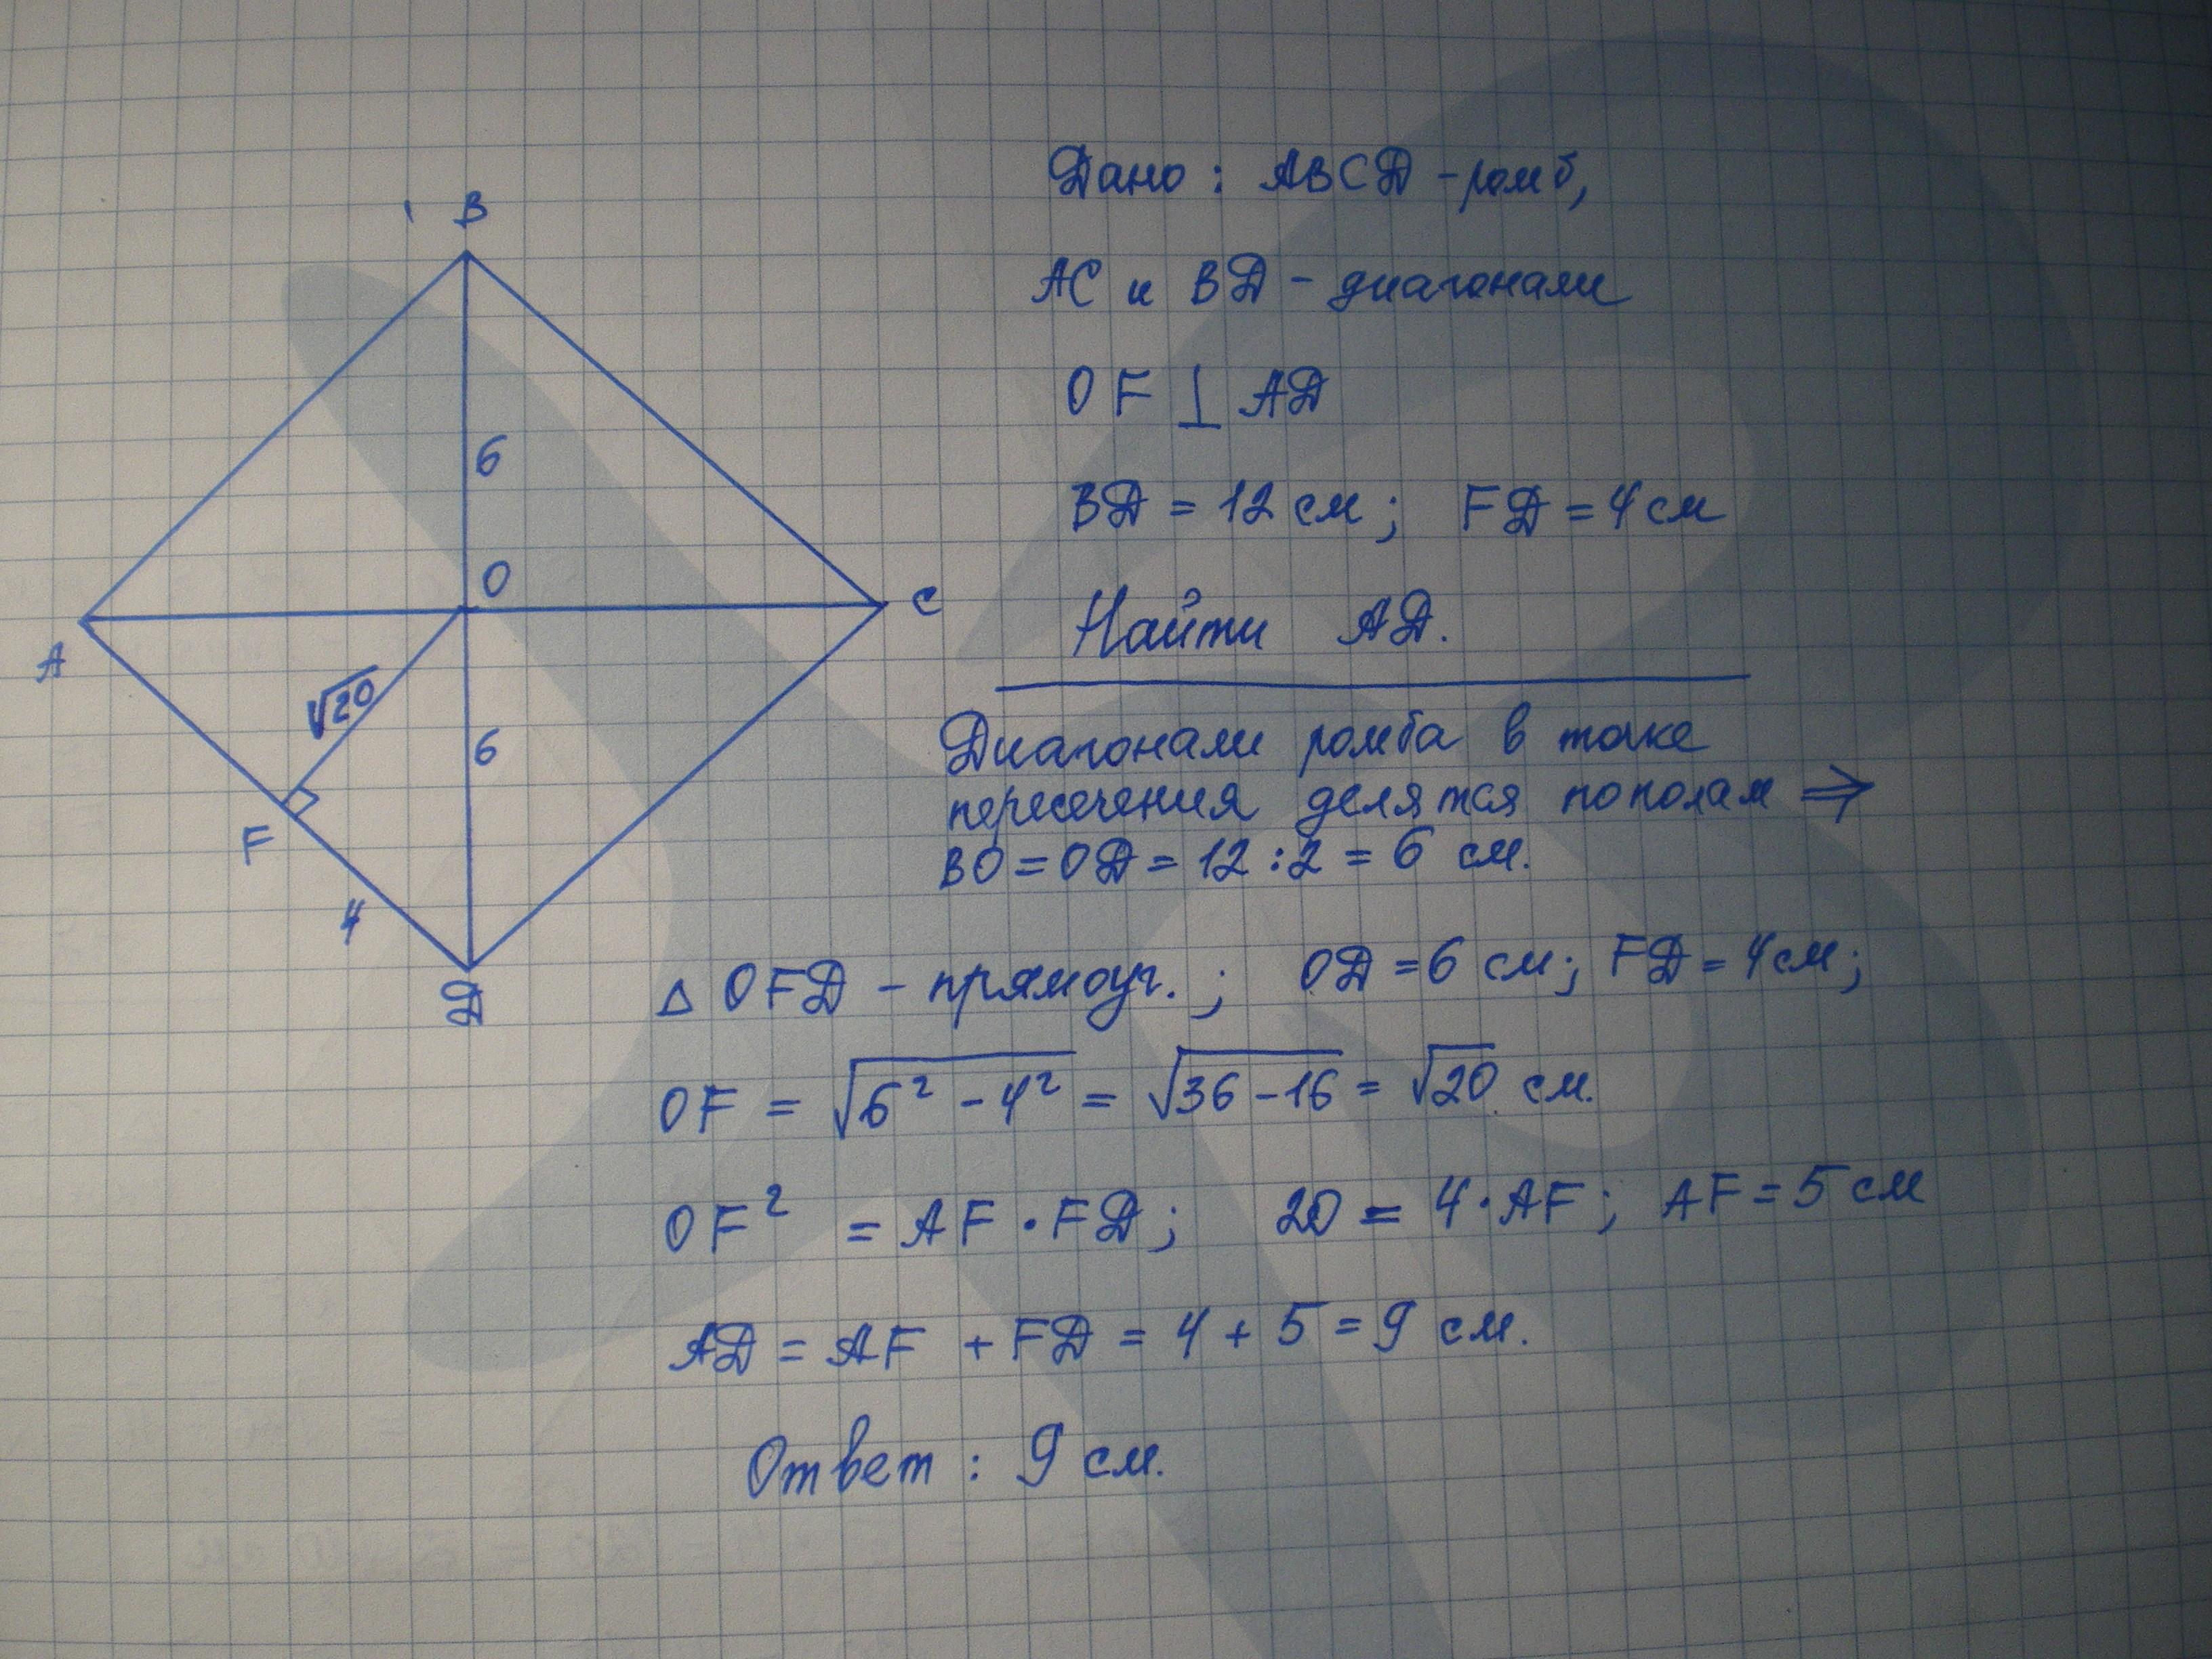 Дано: ABCD - ромб,
AC и BD - диагонали
OF ⊥ AD
BD = 12 см; FD = 4 см
Найти AD.
Диагонали ромба в точке
пересечения делятся пополам ⇒
BO = OD = 12 : 2 = 6 см.
△ OFD - прямоуг.; OD = 6 см; FD = 4 см;
OF = √(6² - 4²) = √(36 - 16) = √20 см.
OF² = AF · FD; 20 = 4 · AF; AF = 5 см
AD = AF + FD = 4 + 5 = 9 см.
Ответ: 9 см.
B
6
O
C
A
√20
6
F
4
D